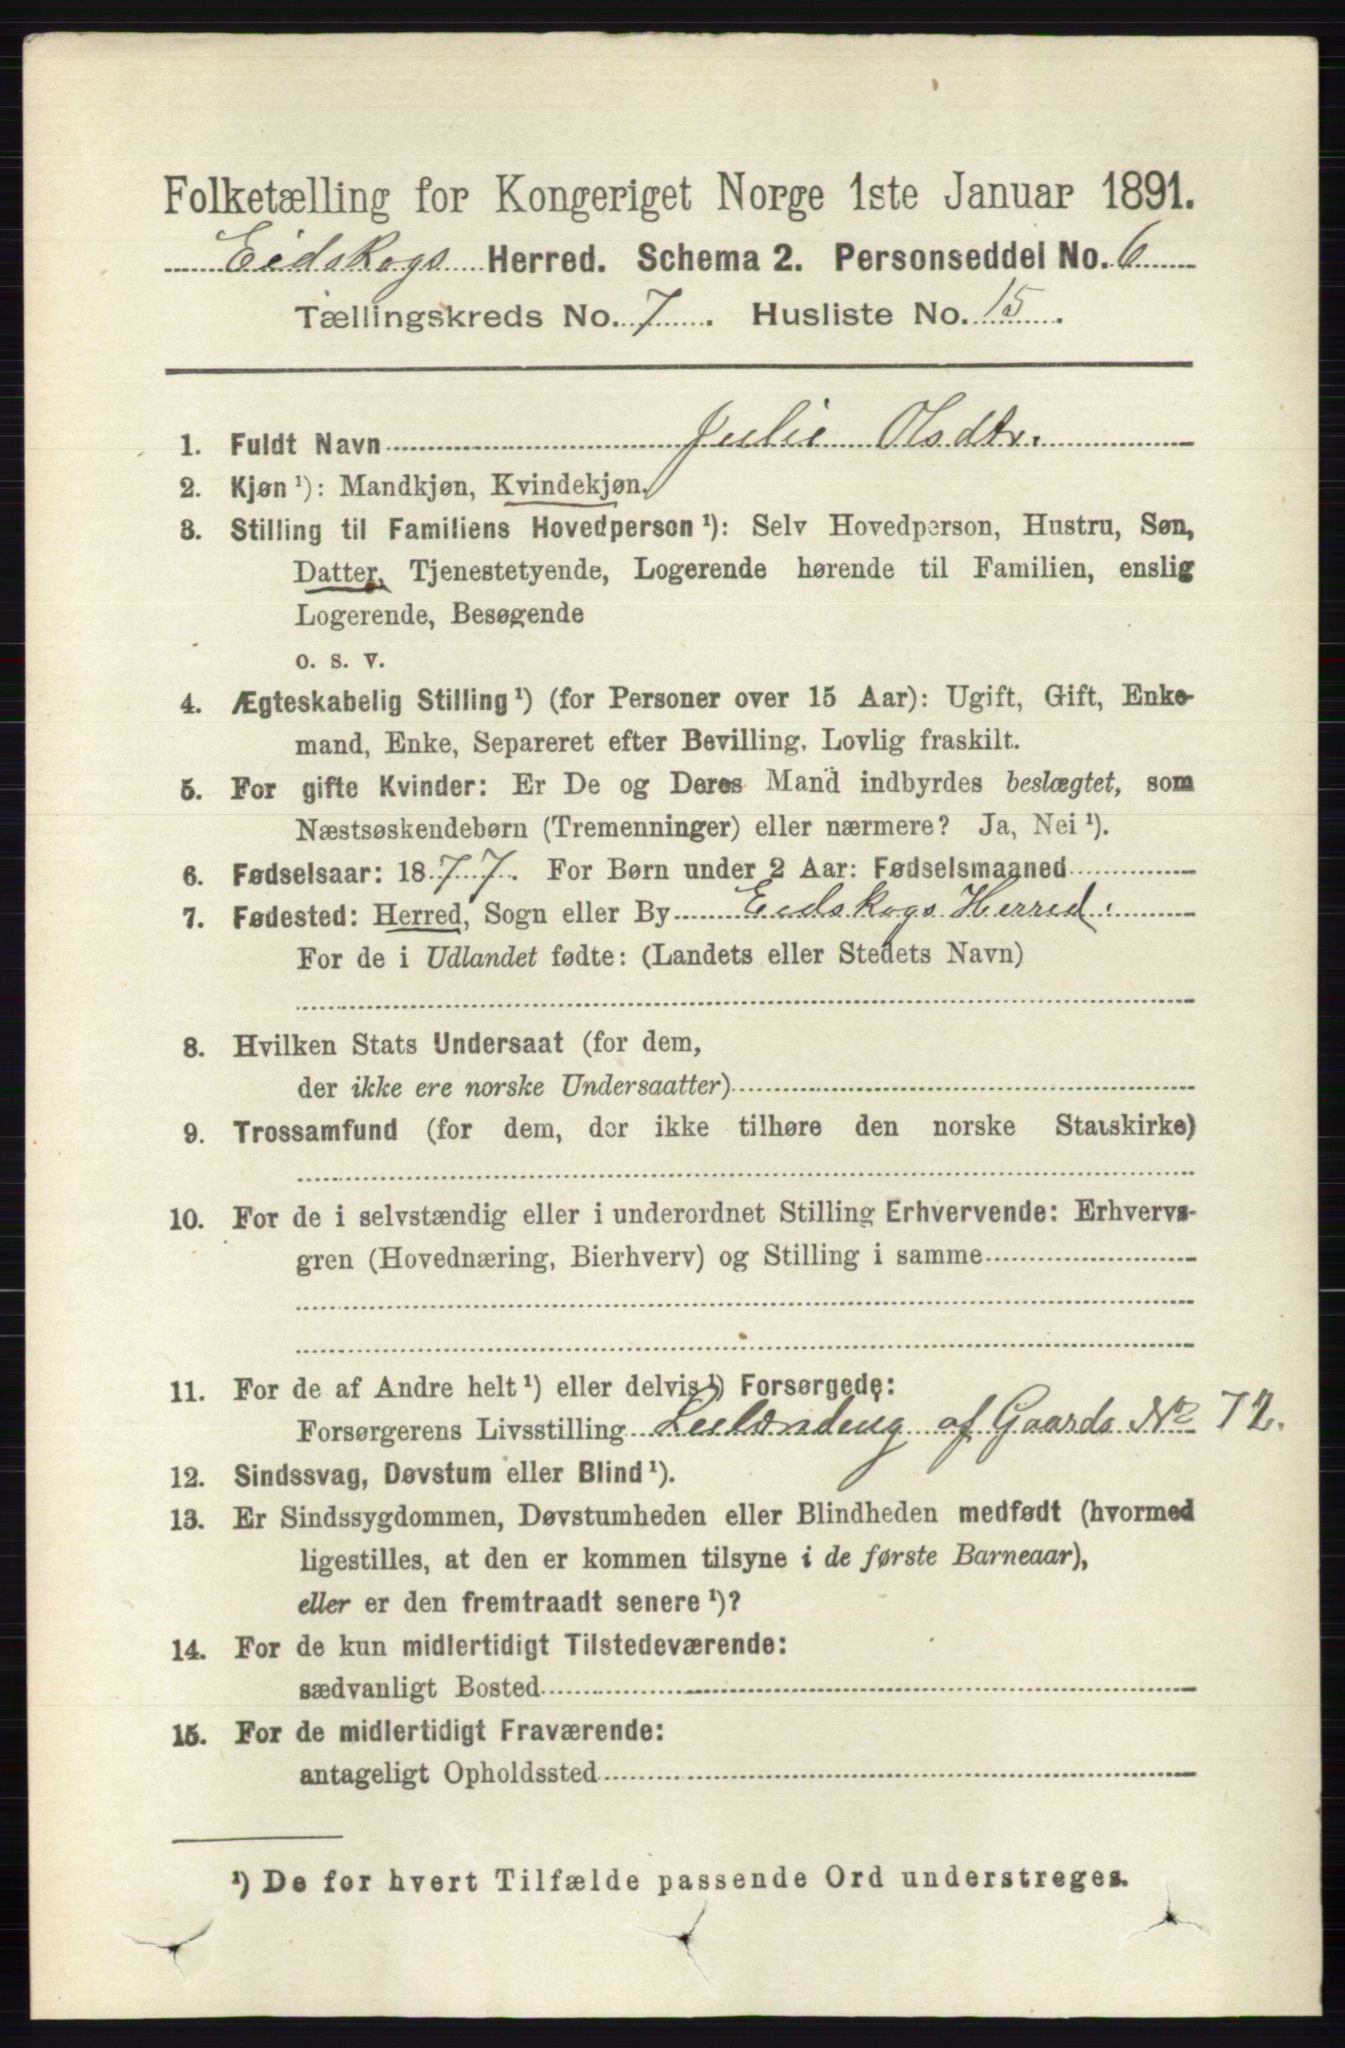 Folketælling for Kongeriget Norge 1ste Januar 1891.
Eidskogs Herred. Schema 2. Personseddel No. 6
Tællingskreds No. 7. Husliste No. 15.
1. Fuldt Navn Julie Olsdtr.
2. Kjøn ¹): Mandkjøn, Kvindekjøn.
3. Stilling til Familiens Hovedperson ¹): Selv Hovedperson, Hustru, Søn,
Datter, Tjenestetyende, Logerende hørende til Familien, enslig
Logerende, Besøgende
o. s. v.
4. Ægteskabelig Stilling ¹) (for Personer over 15 Aar): Ugift, Gift, Enke-
mand, Enke, Separeret efter Bevilling, Lovlig fraskilt.
5. For gifte Kvinder: Er De og Deres Mand indbyrdes beslægtet, som
Næstsøskendebørn (Tremenninger) eller nærmere? Ja, Nei ¹).
6. Fødselsaar: 1877. For Børn under 2 Aar: Fødselsmaaned
7. Fødested: Herred, Sogn eller By Eidskogs Herred.
For de i Udlandet fødte: (Landets eller Stedets Navn)
8. Hvilken Stats Undersaat (for dem,
der ikke ere norske Undersaatter)
9. Trossamfund (for dem, der ikke tilhøre den norske Statskirke)
10. For de i selvstændig eller i underordnet Stilling Erhvervende: Erhvervs-
gren (Hovednæring, Bierhverv) og Stilling i samme
11. For de af Andre helt ¹) eller delvis ¹) Forsørgede:
Forsørgerens Livsstilling Leilænding af Gaards No 72.
12. Sindssvag, Døvstum eller Blind ¹).
13. Er Sindssygdommen, Døvstumheden eller Blindheden medfødt (hvormed
ligestilles, at den er kommen tilsyne i de første Barneaar),
eller er den fremtraadt senere ¹)?
14. For de kun midlertidigt Tilstedeværende:
sædvanligt Bosted
15. For de midlertidigt Fraværende:
antageligt Opholdssted
¹) De for hvert Tilfælde passende Ord understreges.